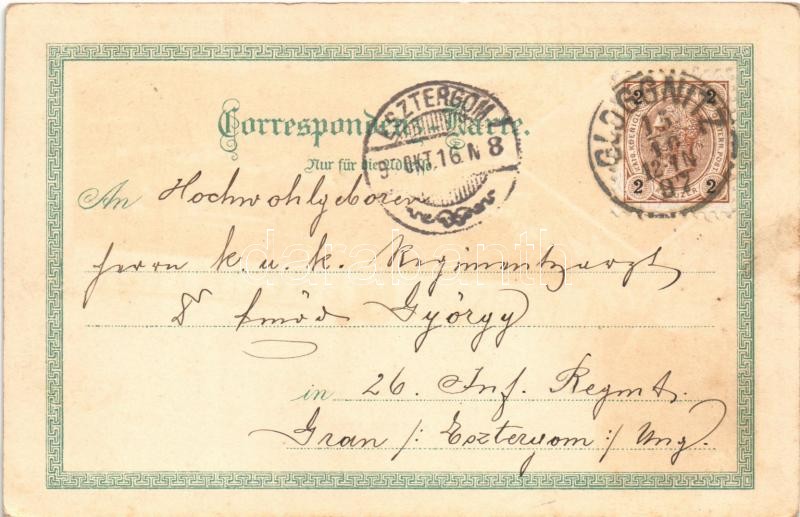 Correspondenz-Karte.
Nur für die Adresse.
ESZTERGOM
OKT. 16 N 8
GLOGGNITZ
15
10
12-1N
97
2 2
2 2
An Hochwohlgeboren
Herrn k. u. k. Regimentsarzt
Dr Emőd György
in 26. Inf. Regmt.
Gran /: Esztergom :/ Ung.
darabanth